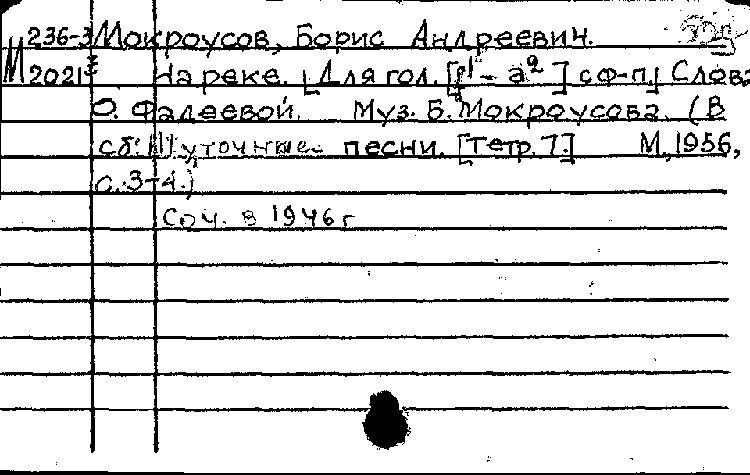 236-3 Мокроусов, Борис Андреевич.
М 2021 На реке. [Для гол. [f¹ - а²] с ф-п.] Слова
О. Фадеевой. Муз. Б. Мокроусова. (В
сб: Шуточные песни. [Тетр. 7.] М, 1956,
с. 3-4.)
Соч. в 1946 г